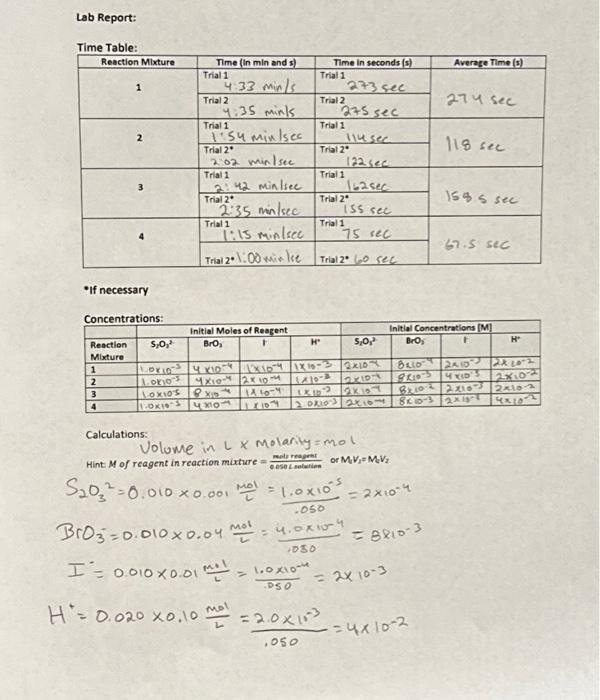 Lab Report:
Time Table:
Reaction Mixture Time (in min and s) Time in seconds (s) Average Time (s)
1 Trial 1 4:33 min/s Trial 1 273 sec 274 sec
Trial 2 4:35 min/s Trial 2 275 sec
2 Trial 1 1:54 min/sec Trial 1 114 sec 118 sec
Trial 2* 2:02 min/sec Trial 2* 122 sec
3 Trial 1 2:42 min/sec Trial 1 162 sec 158.5 sec
Trial 2* 2:35 min/sec Trial 2* 155 sec
4 Trial 1 1:15 min/sec Trial 1 75 sec 67.5 sec
Trial 2* 1:00 min/se Trial 2* 60 sec
*If necessary
Concentrations:
Initial Moles of Reagent Initial Concentrations [M]
Reaction Mixture S₂O₃²⁻ BrO₃⁻ I⁻ H⁺ S₂O₃²⁻ BrO₃⁻ I⁻ H⁺
1 1.0x10⁻⁵ 4x10⁻⁴ 1x10⁻⁴ 1x10⁻³ 2x10⁻⁴ 2x10⁻³ 2x10⁻²
2 1.0x10⁻⁵ 4x10⁻⁴ 2x10⁻⁴ 1x10⁻³ 2x10⁻⁴ 8x10⁻³ 4x10⁻³ 2x10⁻²
3 1.0x10⁻⁵ 8x10⁻⁴ 1x10⁻⁴ 1x10⁻³ 2x10⁻⁴ 8x10⁻² 2x10⁻³ 2x10⁻²
4 1.0x10⁻⁵ 4x10⁻⁴ 1x10⁻⁴ 2.0x10⁻³ 2x10⁻⁴ 8x10⁻³ 2x10⁻³ 4x10⁻²
Calculations:
Volume in L x Molarity = mol
Hint: M of reagent in reaction mixture = mols reagent / 0.050 L solution or M₁V₁=M₂V₂
S₂O₃²⁻ = 0.010 x 0.001 mol/L = 1.0x10⁻⁵ / .050 = 2x10⁻⁴
BrO₃⁻ = 0.010 x 0.04 mol/L = 4.0x10⁻⁴ / .050 = 8x10⁻³
I⁻ = 0.010 x 0.01 mol/L = 1.0x10⁻⁴ / .050 = 2x10⁻³
H⁺ = 0.020 x 0.10 mol/L = 2.0x10⁻³ / .050 = 4x10⁻²